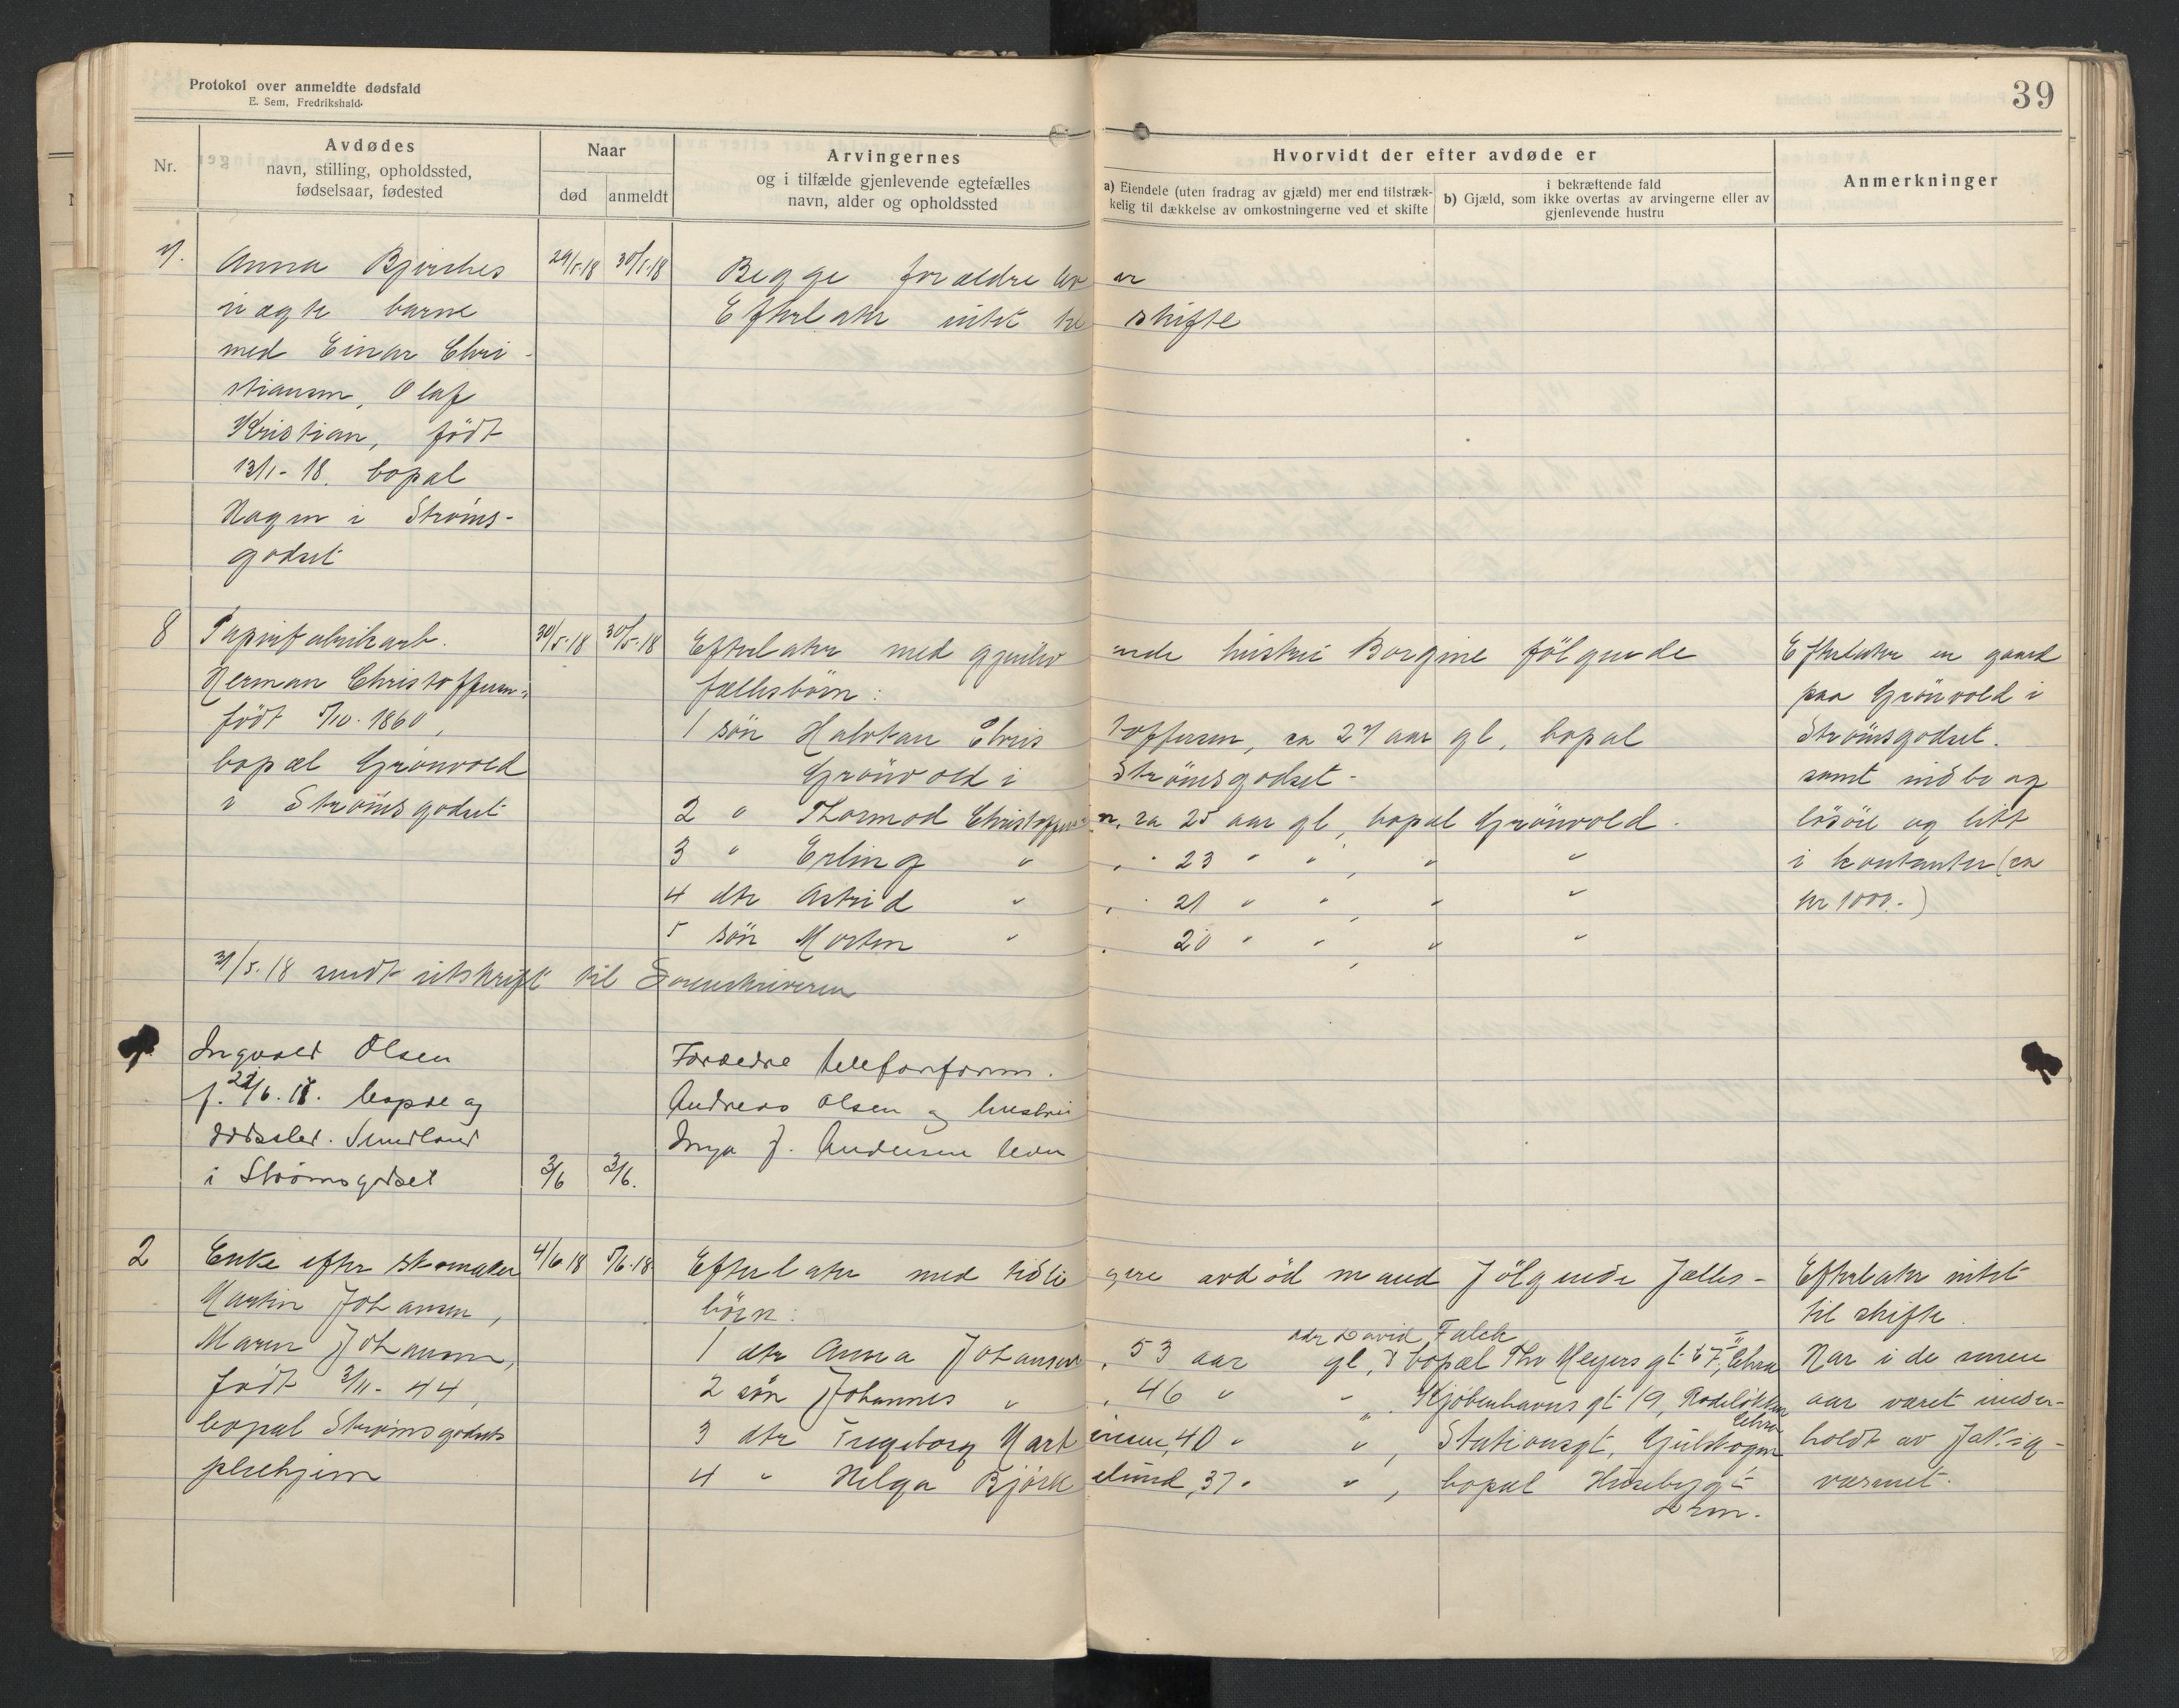 Protokol over anmeldte dødsfald
E. Sem, Fredrikshald.
39
Nr.
Avdødes
navn, stilling, opholdssted,
fødselsaar, fødested
Naar
død anmeldt
Arvingernes
og i tilfælde gjenlevende egtefælles
navn, alder og opholdssted
Hvorvidt der efter avdøde er
a) Eiendele (uten fradrag av gjæld) mer end tilstræk-
kelig til dækkelse av omkostningerne ved et skifte
i bekræftende fald
b) Gjæld, som ikke overtas av arvingerne eller av
gjenlevende hustru
Anmerkninger
7. Anna 29/5.18 30/5.18 Begge forældre lever
uægte barn Efterlater intet til skifte
med Einar Chri-
stiansen, Olaf
Kristian, født
13/1-18. bopæl
Hagen i Strøms-
godset
8 Papirfabrikarb. 30/5.18 30/5.18 Efterlater med gjenlevende hustru Borgine følgende Efterlater en gaard
Herman Christoffersen, fællesbörn: paa Grönvold i
født 5/10.1860, 1 sön Halvdan Christoffersen, ca 27 aar gl, bopæl Strömsgodset.
bopæl Grönvold Grönvold i Strömsgodset- samt indbo og
i Strømsgodset 2 " Thormod Christoffersen, ca 25 aar gl, bopæl Grönvold. lösöre og litt
3 " Erling " , " 23 " " , " " i kontanter (ca
4 dtr Astrid " , " 21 " " , " " kr 1000.-)
5 sön Morten " , 20 " " , " "
31/5.18 sendt utskrift til Sorenskriveren
Ingvald Olsen Forældre telefonform.
f. /6.18. bopæl og Andreas Olsen og hustru
dødssted. Sundland Inga J. Andersen lever
i Strømsgodset 3/6 3/6.
2 Enke efter skomaker 4/6 18 5/6.18 Efterlater med tidligere avdöd mand fölgende fælles- Efterlater intet
Martin Johansen, börn: til skifte.
adr David Falck
Maren Johansen, 1 dtr Anna Johansen, 53 aar gl, bopæl Thv Meyers gt 67, Chra Har i de senere
født 3/11-44, 2 sön Johannes " , 46 " " Kjöbenhavns gt 19, Rodelökken aar været under-
Chra
bopæl Strømsgodsets 3 dtr Ingeborg Martinsen, 40 " " , Stationsgt, Gulskogen holdt av fattig-
pleiehjem 4 " Helga Björklund, 37 " " , bopæl Husebygt væsenet.
Drm.